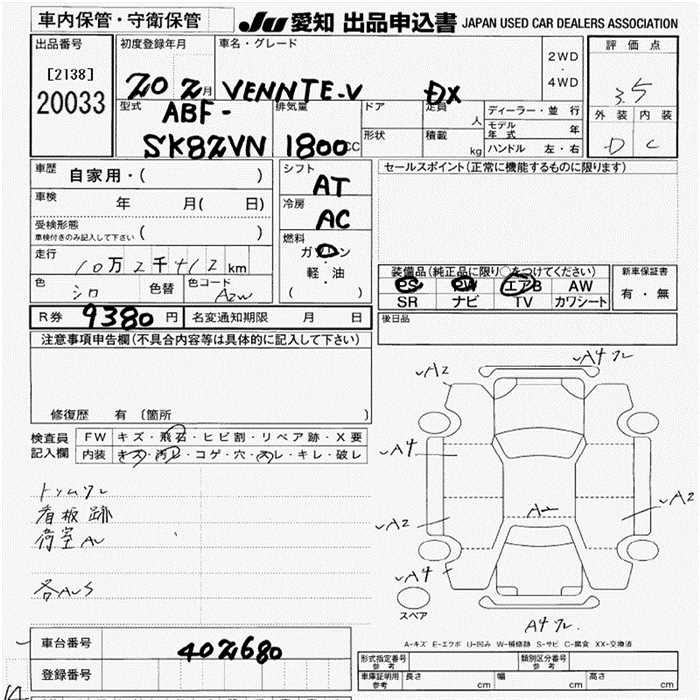 車内保管・守衛保管 JU 愛知 出品申込書 JAPAN USED CAR DEALERS ASSOCIATION
出品番号 初度登録年月 車名・グレード 2WD・4WD 評価点
[2138] 20033
20 2月 VENNTE-V DX 3.5
型式 排気量 ドア 定員 人 ディーラー・並行 外装 内装
ABF-SK82VN 1800CC 形状 積載 kg モデル年式 年 D C
ハンドル 左・右
車歴 自家用・( ) シフト AT セールスポイント(正常に機能するものに限ります)
車検 年 月( 日) 冷房 AC
受検形態 車検付きのみ記入して下さい ( ) 燃料 ガソリン
走行 10万2千412km 軽・油 装備品(純正品に限り○をつけてください) 新車保証書
色 シロ 色替 色コード A2W ( ) PS PW エアB AW 有・無
SR ナビ TV カワシート
R券 9380円 名変通知期限 月 日 後日品
注意事項申告欄(不具合内容等は具体的に記入して下さい)
修復歴 有 (箇所 )
検査員記入欄 FW キズ・飛石・ヒビ割・リペア跡・X要
内装 キズ・汚レ・コゲ・穴・スレ・キレ・破レ
看板跡
荷室AU
各AUS
A2
A4
A2
A4
A2
A2
スペア
A-キズ E-エクボ U-凹み W-補修跡 S-サビ C-腐食 XX-交換済
車台番号 402680
登録番号
形式指定番号 参考 類別区分番号 参考
車庫証明用 参考 長さ cm 幅 cm 高さ cm